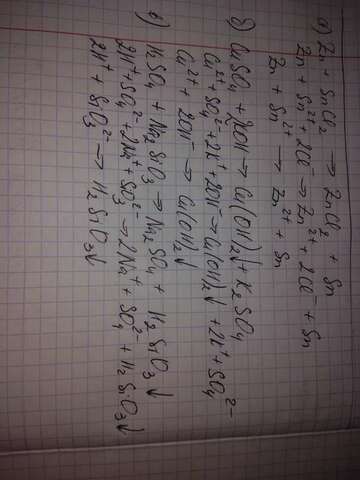 а) Zn + SnCl₂ → ZnCl₂ + Sn
Zn + Sn²⁺ + 2Cl⁻ → Zn²⁺ + 2Cl⁻ + Sn
Zn + Sn²⁺ → Zn²⁺ + Sn
б) CuSO₄ + 2KOH → Cu(OH)₂↓ + K₂SO₄
Cu²⁺ + SO₄²⁻ + 2K⁺ + 2OH⁻ → Cu(OH)₂↓ + 2K⁺ + SO₄²⁻
Cu²⁺ + 2OH⁻ → Cu(OH)₂↓
в) H₂SO₄ + Na₂SiO₃ → Na₂SO₄ + H₂SiO₃↓
2H⁺ + SO₄²⁻ + 2Na⁺ + SiO₃²⁻ → 2Na⁺ + SO₄²⁻ + H₂SiO₃↓
2H⁺ + SiO₃²⁻ → H₂SiO₃↓